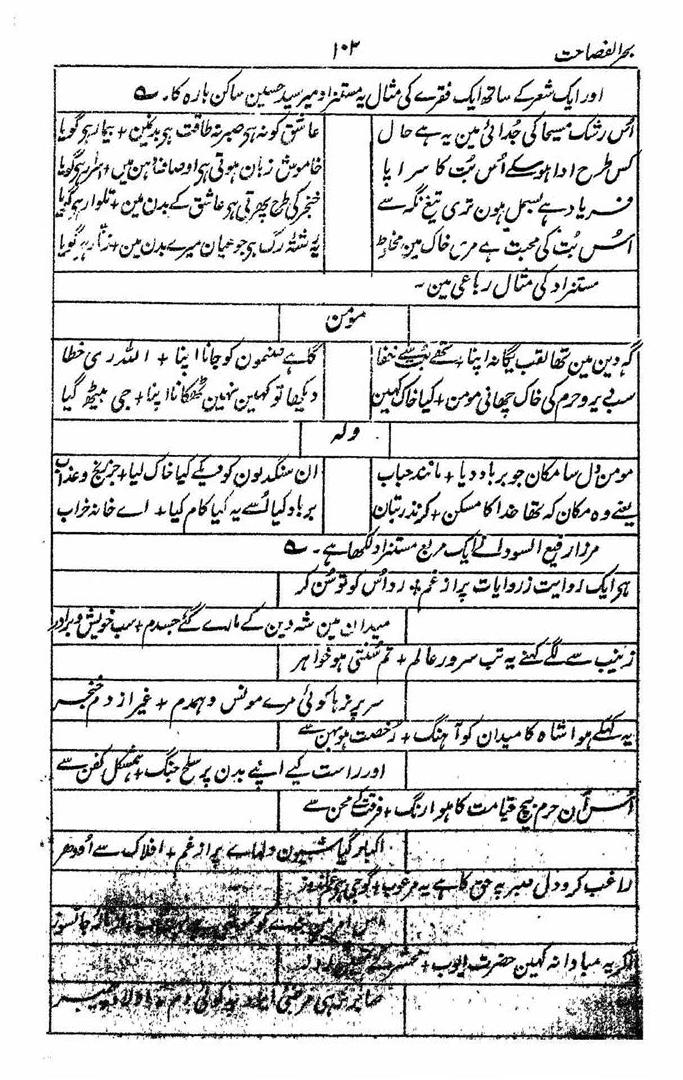 بحر الفصاحت
۱۰۳
اور ایک شعر کے ساتھ ایک فقرے کی مثال یہ مستزاد میر سید حسین ساکن بارہ کا۔
اُس رشک مسیحا کی جُدائی مین یہ ہے حال
عاشق کو نہ ہی صبر نہ طاقت ہی بدن مین + بیمار ہی گویا
کس طرح ادا ہوسکے اُس بُت کا سراپا
خاموش زبان ہوتی ہی اوصاف دہن مین +
فریاد ہے بسمل ہون تری تیغ نگہ سے
خنجر کی طرح پھرتی ہی عاشق کے بدن مین + تلوار ہی گویا
اُس بُت کی محبت ہے مری خاک مین
یہ رشتہ رگ ہی جو عیان میرے بدن مین + زنار ہی گویا
مستزاد کی مثال رباعی مین۔
مومن
گہ دین مین تھا لقب بیگانہ اپنا + تھے بُت سے خفا
گاہے صنمون کو جانا اپنا + اللہ ری خطا
سب دیر و حرم کی خاک چھانی مومن + کیا خاک کہین
دیکھا تو کہین نہین ٹھکانا اپنا + جی بیٹھ گیا
ولہ
مومن دل سا مکان جو برباد دیا + مانند حباب
ان سنگدلون کو دیکے کیا خاک لیا + جز رنج و عذاب
یعنے وہ مکان کہ تھا خدا کا مسکن + کر نذر بتان
برباد کیا اُسے یہ کیا کام کیا + اے خانہ خراب
مرزا رفیع السودا نے ایک مربع مستزاد لکھا ہے۔
ہی ایک روایت ز روایات پر از غم + رو اُس کو تو سُن کر
میدان مین شہ دین کے مارے گئے جسدم + سب خویش و برادر
زینب سے لگے کہنے یہ تب سرور عالم + تم سُنتی ہو خواہر
سر پر نرہا کوئی مرے مونس و ہمدم + غیر از دم خنجر
یہ کہکے ہوا شاہ کا میدان کو آہنگ + رخصت ہو بہن سے
اور راست کیے اپنے بدن پر سلح جنگ + ہمشکل کفن سے
اُس آن حرم بیچ قیامت کا ہوا رنگ + فرقت کے محن سے
گیا شیون دلہاے پر از غم + افلاک سے اُودھر
راغب کرو دل صبر پہ حق کا ہے یہ مرغوب +
مبادا نہ کہین حضرت ایوب +
صابر